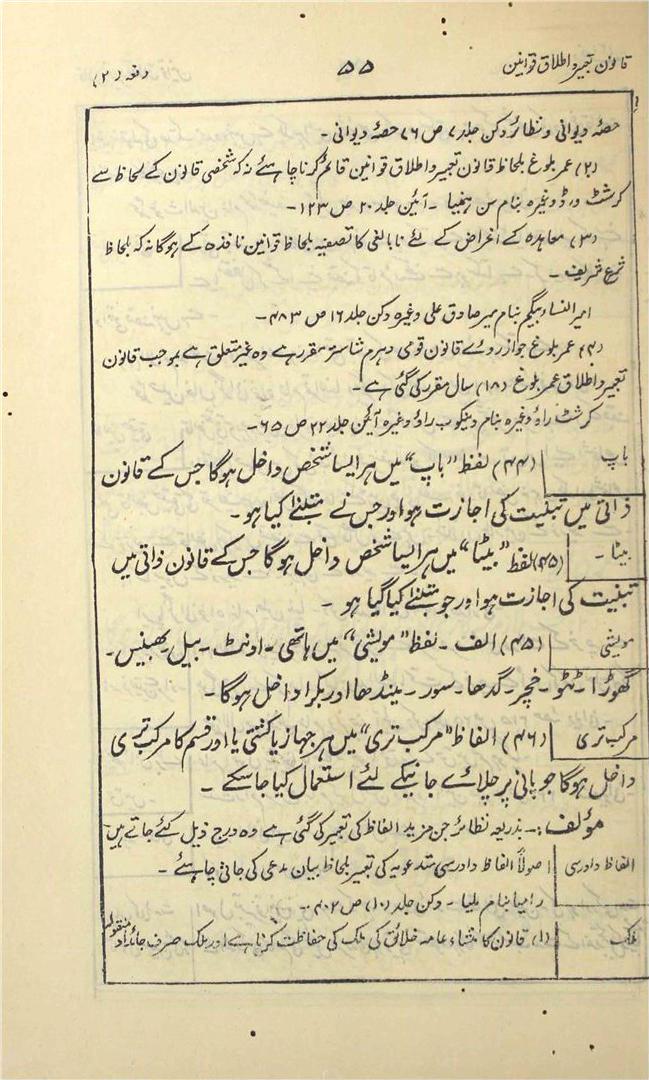 قانون تعبیر و اطلاق قوانین ۵۵ دفعہ (۲)
حصۂ دیوانی و نظائر دکن جلد ۷ ص ۷۶ حصۂ دیوانی ۔
(۲) عمر بلوغ بلحاظ قانون تعبیر و اطلاق قوانین قائم کرنا چاہئے نہ کہ شخصی قانون کے لحاظ سے
کرشٹ وغیرہ بنام ۔ آئین جلد ۲۰ ص ۱۲۳ ۔
(۳) معاہدہ کے اغراض کے لئے نابالغی کا تصفیہ بلحاظ قوانین نافذہ کے ہوگا نہ کہ بلحاظ
شرع شریف ۔
امیر النساء بیگم بنام میر صادق علی وغیرہ دکن جلد ۱۶ ص ۴۸۳ ۔
(۴) عمر بلوغ جو ازروے قانون قومی دہرم شاستر مقرر ہے وہ غیر متعلق ہے بموجب قانون
تعبیر و اطلاق عمر بلوغ (۱۸) سال مقرر کی گئی ہے ۔
کرشٹ راؤ وغیرہ بنام وینکوب راؤ وغیرہ آئین جلد ۲۲ ص ۶۵ ۔
باپ (۴۴) لفظ "باپ" میں ہر ایسا شخص داخل ہوگا جس کے قانون
ذاتی میں تبنیت کی اجازت ہو اور جس نے متبنےٰ کیا ہو ۔
بیٹا ۔ (۴۵) لفظ "بیٹا" میں ہر ایسا شخص داخل ہوگا جس کے قانون ذاتی میں
تبنیت کی اجازت ہو اور جو متبنےٰ کیا گیا ہو ۔
مویشی (۴۵) الف ۔ لفظ "مویشی" میں ہاتھی ۔ اونٹ ۔ بیل ۔ بھینس ۔
گھوڑا ۔ ٹٹو ۔ خچر ۔ گدھا ۔ سور ۔ مینڈھا اور بکرا داخل ہوگا ۔
مرکب تری (۴۶) الفاظ "مرکب تری" میں ہر جہاز یا کشتی یا اور قسم کا مرکب تری
داخل ہوگا جو پانی پر چلاے جانیکے لئے استعمال کیا جا سکے ۔
مؤلف :۔ بذریعہ نظائر جن مزید الفاظ کی تعبیر کی گئی ہے وہ درج ذیل کئے جاتے ہیں
الفاظ دادرسی اصولاً الفاظ دادرسی متدعویہ کی تعبیر بلحاظ بیان مدعی کی جانی چاہئے ۔
رامیا بنام ملیا ۔ دکن جلد (۱۰) ص ۴۰۲ ۔
ملک (۱) قانون کا منشاء عامہ خلائق کی ملک کی حفاظت کرنا ہے اور ملک صرف جائداد منقولہ